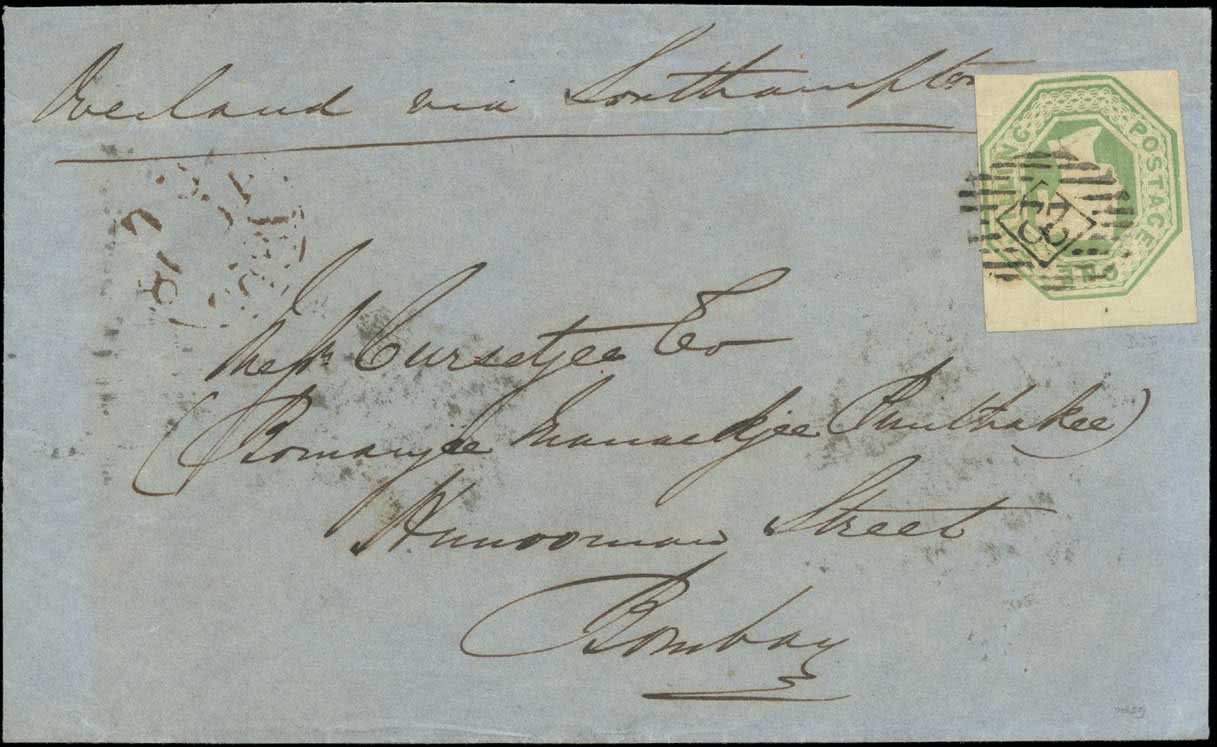 Overland via Southampton
POSTAGE
ONE
Messrs Cursetjee & Co
(Bomanjee Manackjee Punthakee)
Hunnooman Street
Bombay